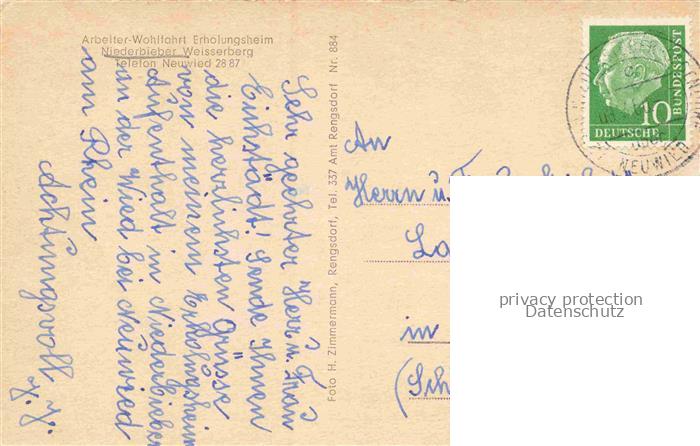 Arbeiter-Wohlfahrt Erholungsheim
Niederbieber Weisserberg
Telefon Neuwied 28 87
Foto H. Zimmermann, Rengsdorf, Tel. 337 Amt Rengsdorf Nr. 884
Sehr geehrter Herr u. Frau
Eichstädt! Sende Ihnen
die herzlichsten Grüsse
von meinem Erholungsheim
Aufenthalt in Niederbieber
an der Wied bei Neuwied
am Rhein
Achtungsvoll
An
Herrn u.
in
(Sch
10
DEUTSCHE
BUNDESPOST
NEUWIED
privacy protection
Datenschutz